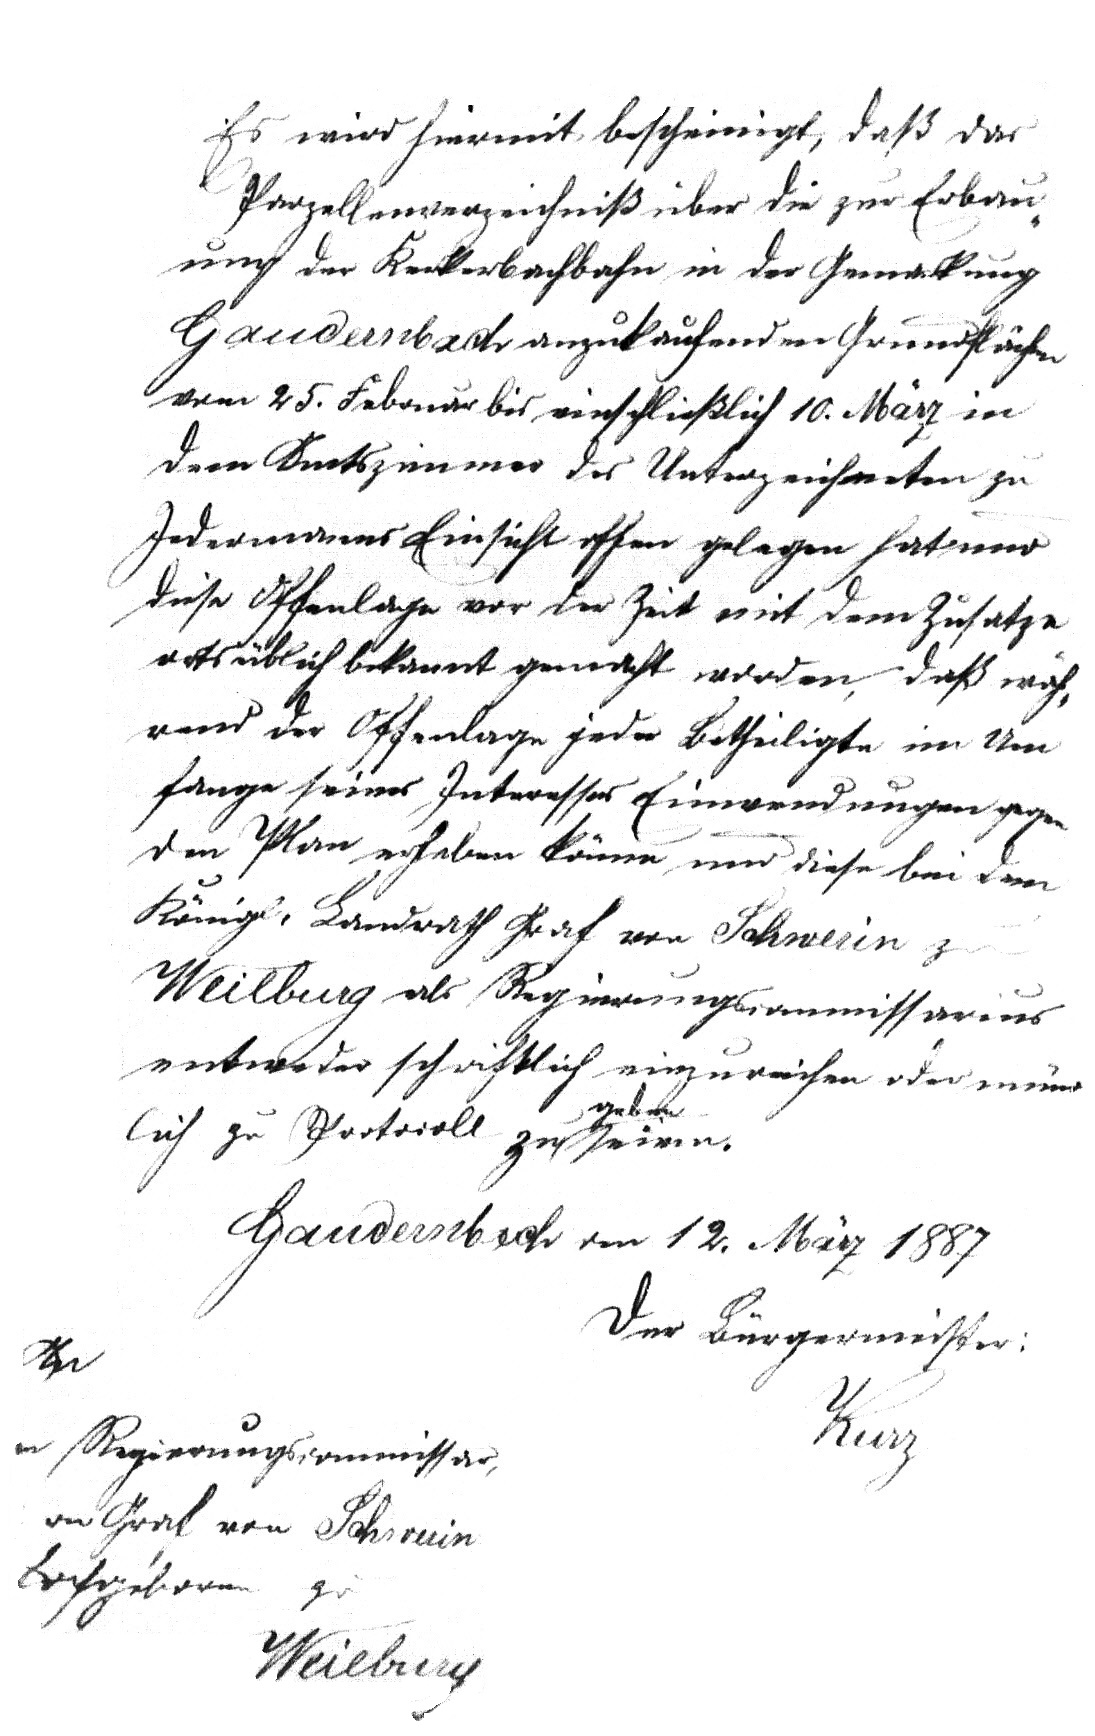 Es wird hiermit bescheinigt, daß das
Parzellenverzeichniß über die zur Erbau-
ung der Kerkerbachbahn in der Gemarkung
Gaudernbach anzukaufenden Grundflächen
vom 25. Februar bis einschließlich 10. März in
dem Amtszimmer des Unterzeichneten zu
Jedermanns Einsicht offen gelegen hat und
diese Offenlage vor der Zeit mit dem Zusatze
ortsüblich bekannt gemacht worden, daß wäh-
rend der Offenlage jeder Betheiligte im Um
fange seines Interesses Einwendungen gegen
den Plan erheben könne und diese bei dem
Königl. Landrath Graf von Schwerin z
Weilburg als Regierungscommissarius
entweder schriftlich einzureichen oder münd
lich zu Protocoll zu geben seien.
Gaudernbach am 12. März 1887
Der Bürgermeister:
Kurz
An
n Regierungscommissar,
rn Graf von Schwerin
Hochgeboren zu
Weilburg